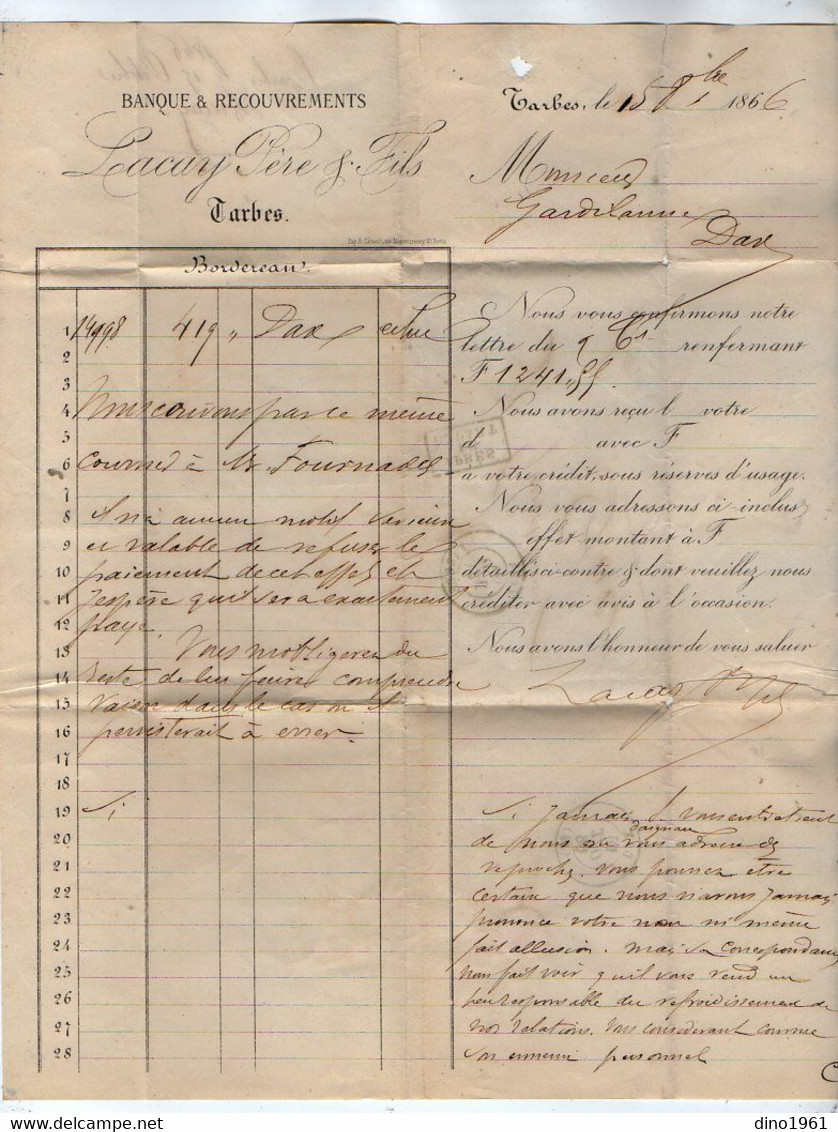 BANQUE & RECOUVREMENTS
Lacay Père & Fils
Tarbes.
Tarbes, le 15 8bre 1866
Monsieur
Gardilanne
Dax
Bordereau.
1 14998 419 " Dax
2
3
4 Nous écrivons par ce même
5
6 courrier à Mr Fournadet
7
8 il n'a aucun motif sérieux
9 et valable de refuser le
10 paiement de cet effet et
11 j'espère qu'il sera exactement
12 payé.
13 Vous m'obligerez du
14 reste de lui faire comprendre
15 raison dans le cas où il
16 persisterait à errer.
17
18
19 Si
20
21
22
23
24
25
26
27
28
Nous vous confirmons notre
lettre du 9 Ct renfermant
F 1241,55.
Nous avons reçu l votre
d avec F
à votre crédit, sous réserves d'usage.
Nous vous adressons ci-inclus
effet montant à F
détaillés ci-contre & dont veuillez nous
créditer avec avis à l'occasion.
Nous avons l'honneur de vous saluer
Lacay P & fils
Si jamais
de nous ou vous adresser des
reproches. Vous pouvez être
certain que nous n'avons jamais
prononcé votre nom ni même
fait allusion. mais sa correspondance
nous fait voir qu'il vous rend un
peu responsable du refroidissement de
nos relations. Vous considérant comme
son ennemi personnel
dino1961